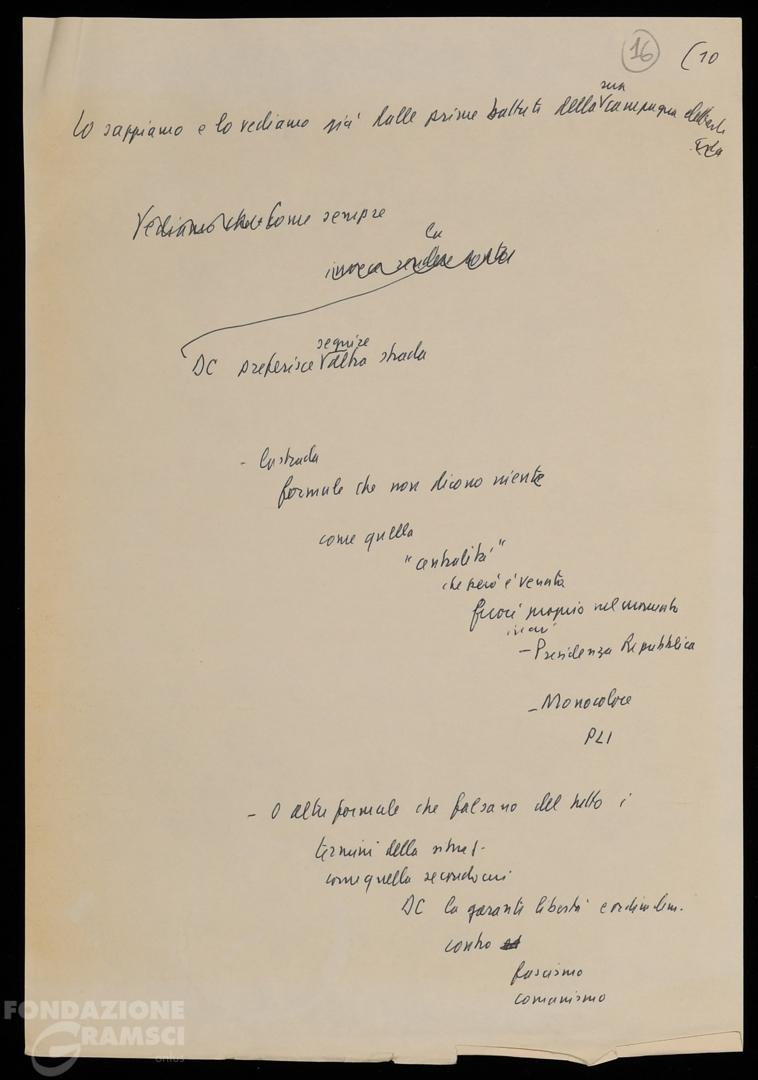 16 (10
sua
Lo sappiamo e lo vediamo già dalle prime battute della campagna elettorale
Vediamo come sempre
la
invece rendere conto
seguire
DC preferisce altra strada
- La strada
formule che non dicono niente
come quella
"centralità"
che però è venuta
fuori proprio nel momento
in cui
- Presidenza Repubblica
- Monocolore
PLI
- O altre formule che falsano del tutto i
termini della situaz.
come quella secondo cui
DC la garante libertà e ordine dem.
contro
fascismo
comunismo
FONDAZIONE
GRAMSCI
onlus